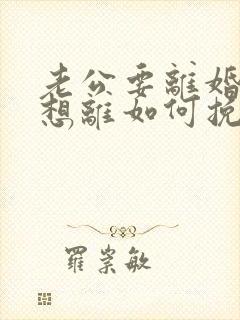 老公要離婚
想離如何挽
羅崇敏